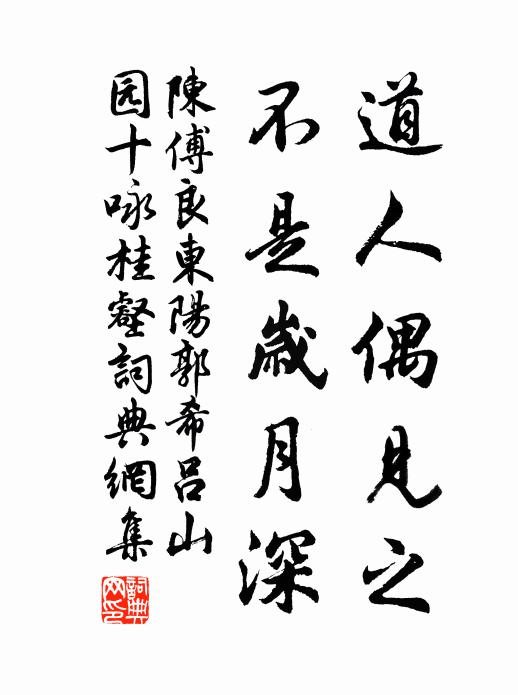 道人偶見之
不是歲月深
陳傅良東陽郭希呂山
园十咏桂壑詞典網集
詞典網印